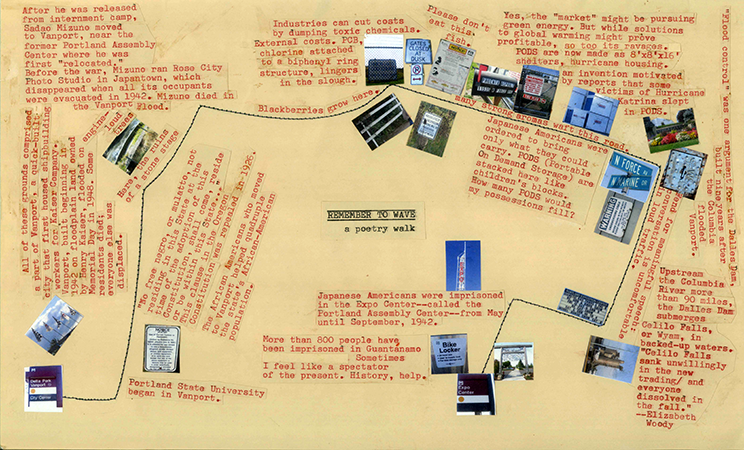 After he was released
from internment camp,
Sadao Mizuno moved
to Vanport, near the
former Portland Assembly
Center where he was
first "relocated."
Before the war, Mizuno ran Rose City
Photo Studio in Japantown, which
disappeared when all its occupants
were evacuated in 1942. Mizuno died in
the Vanport Flood.
Industries can cut costs
by dumping toxic chemicals.
External costs. PCB,
chlorine attached
to a biphenyl ring
structure, lingers
in the slough.
Please don't
eat this
fish.
Yes, the "market" might be pursuing
green energy. But while solutions
to global warming might prove
profitable, so too its ravages.
PODS are now made as 8'x8'x16'
shelters, hurricane housing
an invention motivated
by reports that some
victims of Hurricane
Katrina slept
in PODS.
"Flood control" was one argument for the Dalles Dam,
built nine years after
the Columbia
flooded
Vanport.
Blackberries grow here.
many strong aromas waft this road.
Japanese Americans were
ordered to bring
only what they could
carry. PODS (Portable
On Demand Storage) are
stacked here like
children's blocks.
How many PODS would
my possessions fill?
Here, the ruins
of a stone stage
All of these grounds comprised
a part of Vanport, a quick-built
city that first housed shipbuilding
workers for Kaiser Company.
Vanport, built beginning in
1942 on floodplain land owned
by Henry Kaiser, flooded on
Memorial Day in 1948. Some
residents died;
everyone else was
displaced.
"No free negro, or mulatto, not
residing in this State at the
time of the adoption of this
Constitution, shall come, reside
or be within this State..."
This clause in the Oregon
Constitution was repealed in 1926.
The African Americans who moved
to Vanport helped quadruple
the state's African-American
population.
REMEMBER TO WAVE
a poetry walk
Japanese Americans were imprisoned
in the Expo Center--called the
Portland Assembly Center--from May
until September, 1942.
More than 800 people have
been imprisoned in Guantanamo
Sometimes
I feel like a spectator
of the present. History, help.
Portland State University
began in Vanport.
Upstream
the Columbia
River more
than 90 miles,
the Dalles Dam
submerges
Celilo Falls,
or Wyam, in
backed-up waters.
"Celilo Falls
sank unwillingly
in the new
trading/ and
everyone
dissolved in
the fall."
--Elizabeth
Woody
GATES
CLOSED
AT
DUSK
N FORCE AV
N MARINE DR
WARNING
Bike
Locker
Expo
Center
Delta Park
Vanport
City Center